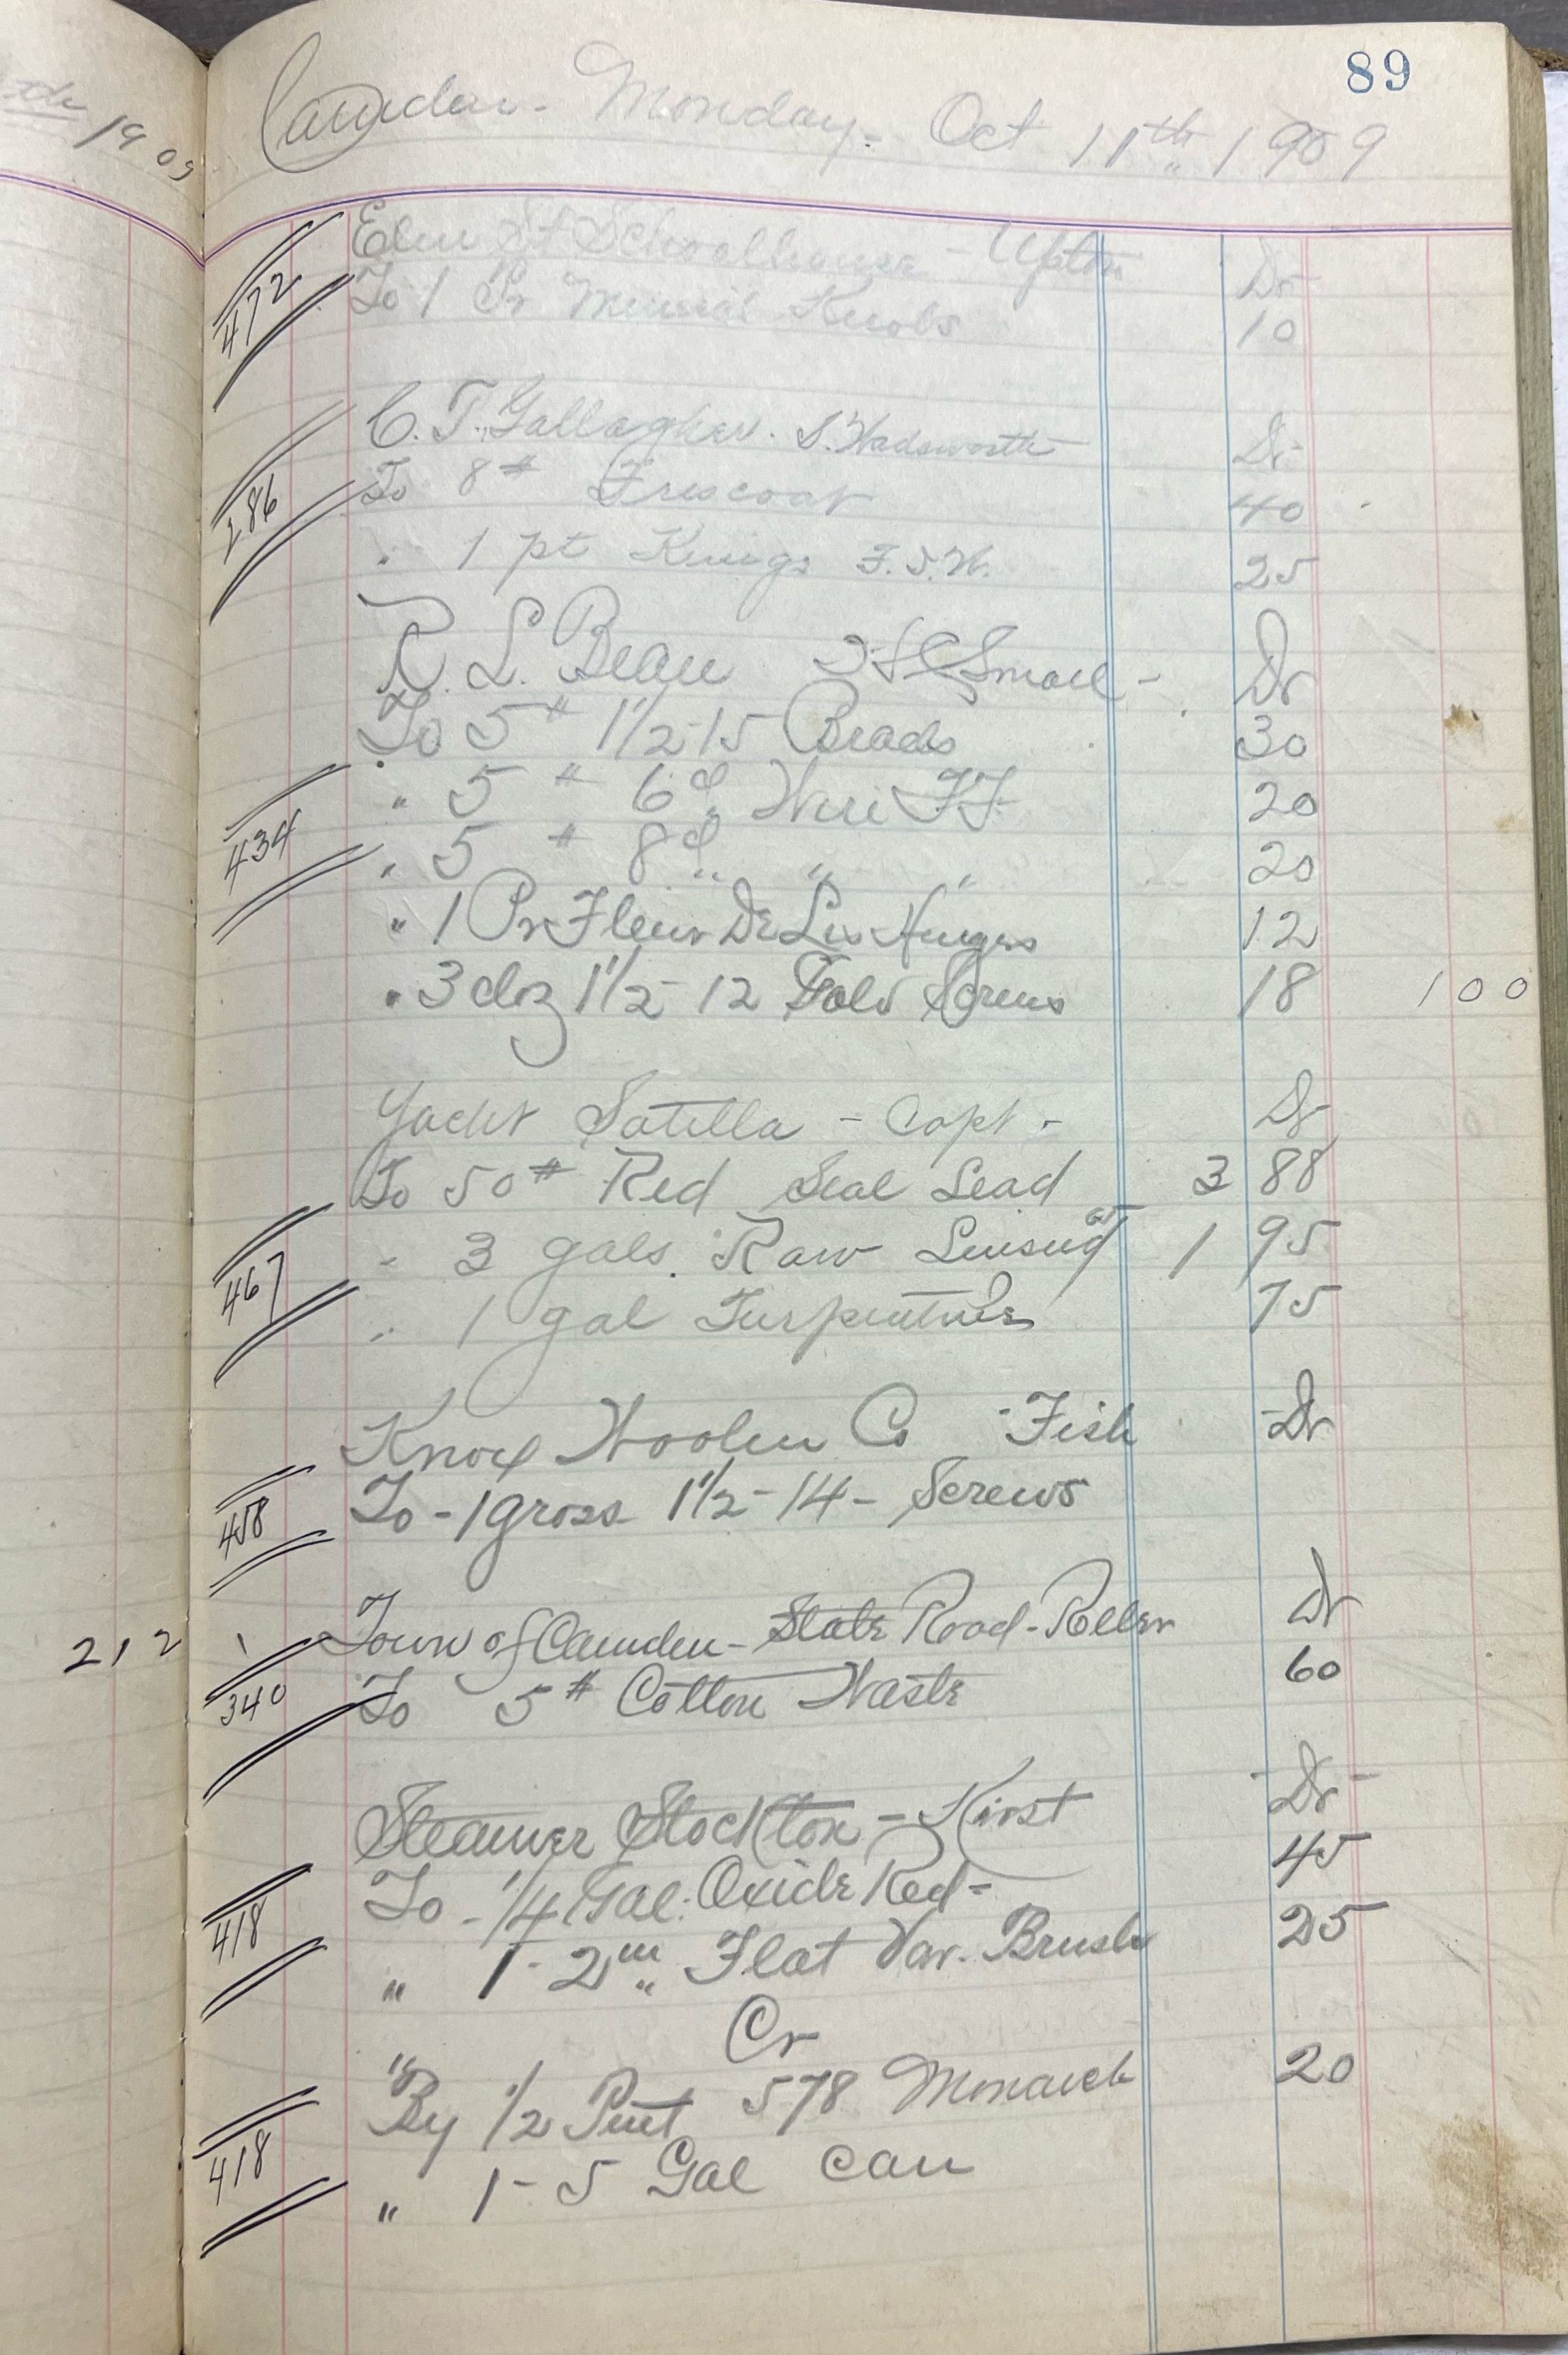 th 1909
89
Camden - Monday - Oct 11th 1909
Elm St Schoolhouse - Upton Dr
472 To 1 Pr Mineral Knobs 10
C. T. Gallagher. S. Wadsworth Dr
286 To 8 # Frescoat 40
" 1 pt Kings F.S.W. 25
R. L. Bean Small - Dr
To 5 # 1 1/2-15 Brads 30
" 5 # 6d Wire F.F. 20
434 " 5 # 8d " " 20
" 1 Pr Fleur De Lis Hinges 12
" 3 doz 1 1/2 - 12 Screws 18 1 00
Yacht Satilla - Capt - Dr
To 50 # Red Seal Lead 3 88
" 3 gals. Raw Linseed 1 95
467 " 1 gal Turpentine 75
Knox Woolen Co - Fish - Dr
458 To - 1 gross 1 1/2 - 14 - Screws
212 Town of Camden - State Road - Roller Dr
340 To 5 # Cotton Waste 60
Steamer Stockton - Kirst - Dr -
To - 1/4 Gal. Oxide Red - 45
418 " 1 - 2 in " Flat Var. Brush 25
Cr
" By 1/2 Pint 578 Monarch 20
418 " 1 - 5 Gal Can